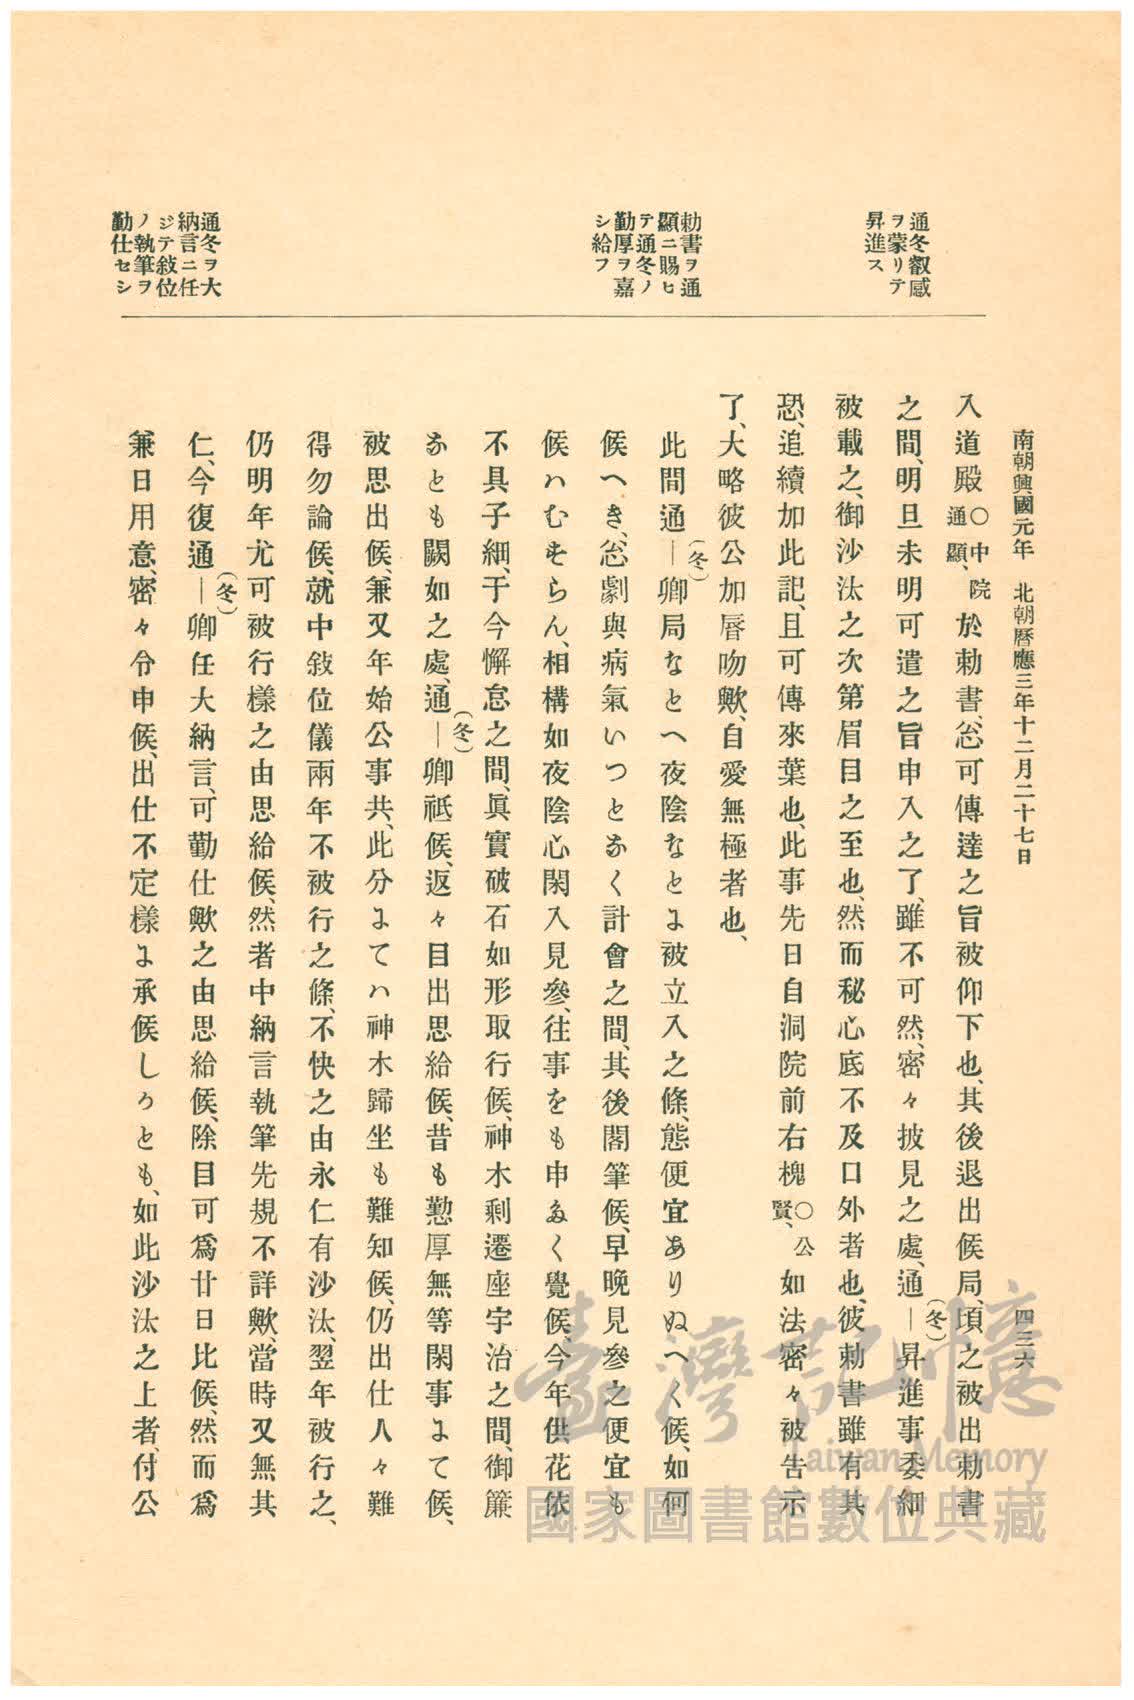 南朝興國元年 北朝曆應三年十二月二十七日
四三六
通冬叡感
ヲ蒙リテ
昇進ス
勅書ヲ通
顯ニ賜ヒ
テ通冬ノ
勤厚ヲ嘉
シ給フ
通冬ヲ大
納言ニ任
ジテ敍位
ノ執筆ヲ
勤仕セシ
入道殿〇中院通顯、於勅書、忩可傳達之旨被仰下也、其後退出候局、頃之被出勅書
之間、明旦未明可遣之旨申入之了、雖不可然、密々披見之處、通―(冬)昇進事委細
被載之、御沙汰之次第眉目之至也、然而秘心底不及口外者也、彼勅書雖有其
恐、追續加此記、且可傳來葉也、此事先日自洞院前右槐〇公賢、如法密々被告示
了、大略彼公加脣吻歟、自愛無極者也、
此間通―(冬)卿局なとへ夜陰なとよ被立入之條、態便宜ありぬへく候、如何
候へき、忩劇與病氣いつとあく計會之間、其後閣筆候、早晩見參之便宜も
候ハむをらん、相構如夜陰心閑入見參、往事をも申あく覺候、今年供花依
不具子細、于今懈怠之間、眞實破石如形取行候、神木剩遷座宇治之間、御簾
あとも闕如之處、通―(冬)卿祗候、返々目出思給候、昔も懃厚無等閑事よて候、
被思出候、兼又年始公事共、此分よてハ神木歸坐も難知候、仍出仕人々難
得勿論候、就中敍位儀兩年不被行之條、不快之由永仁有沙汰、翌年被行之、
仍明年尤可被行樣之由思給候、然者中納言執筆先規不詳歟、當時又無其
仁、今復通―(冬)卿任大納言、可勤仕歟之由思給候、除目可爲廿日比候、然而爲
兼日用意、密々令申候、出仕不定樣よ承候しうとも、如此沙汰之上者、付公
臺灣記憶
Taiwan Memory
國家圖書館數位典藏